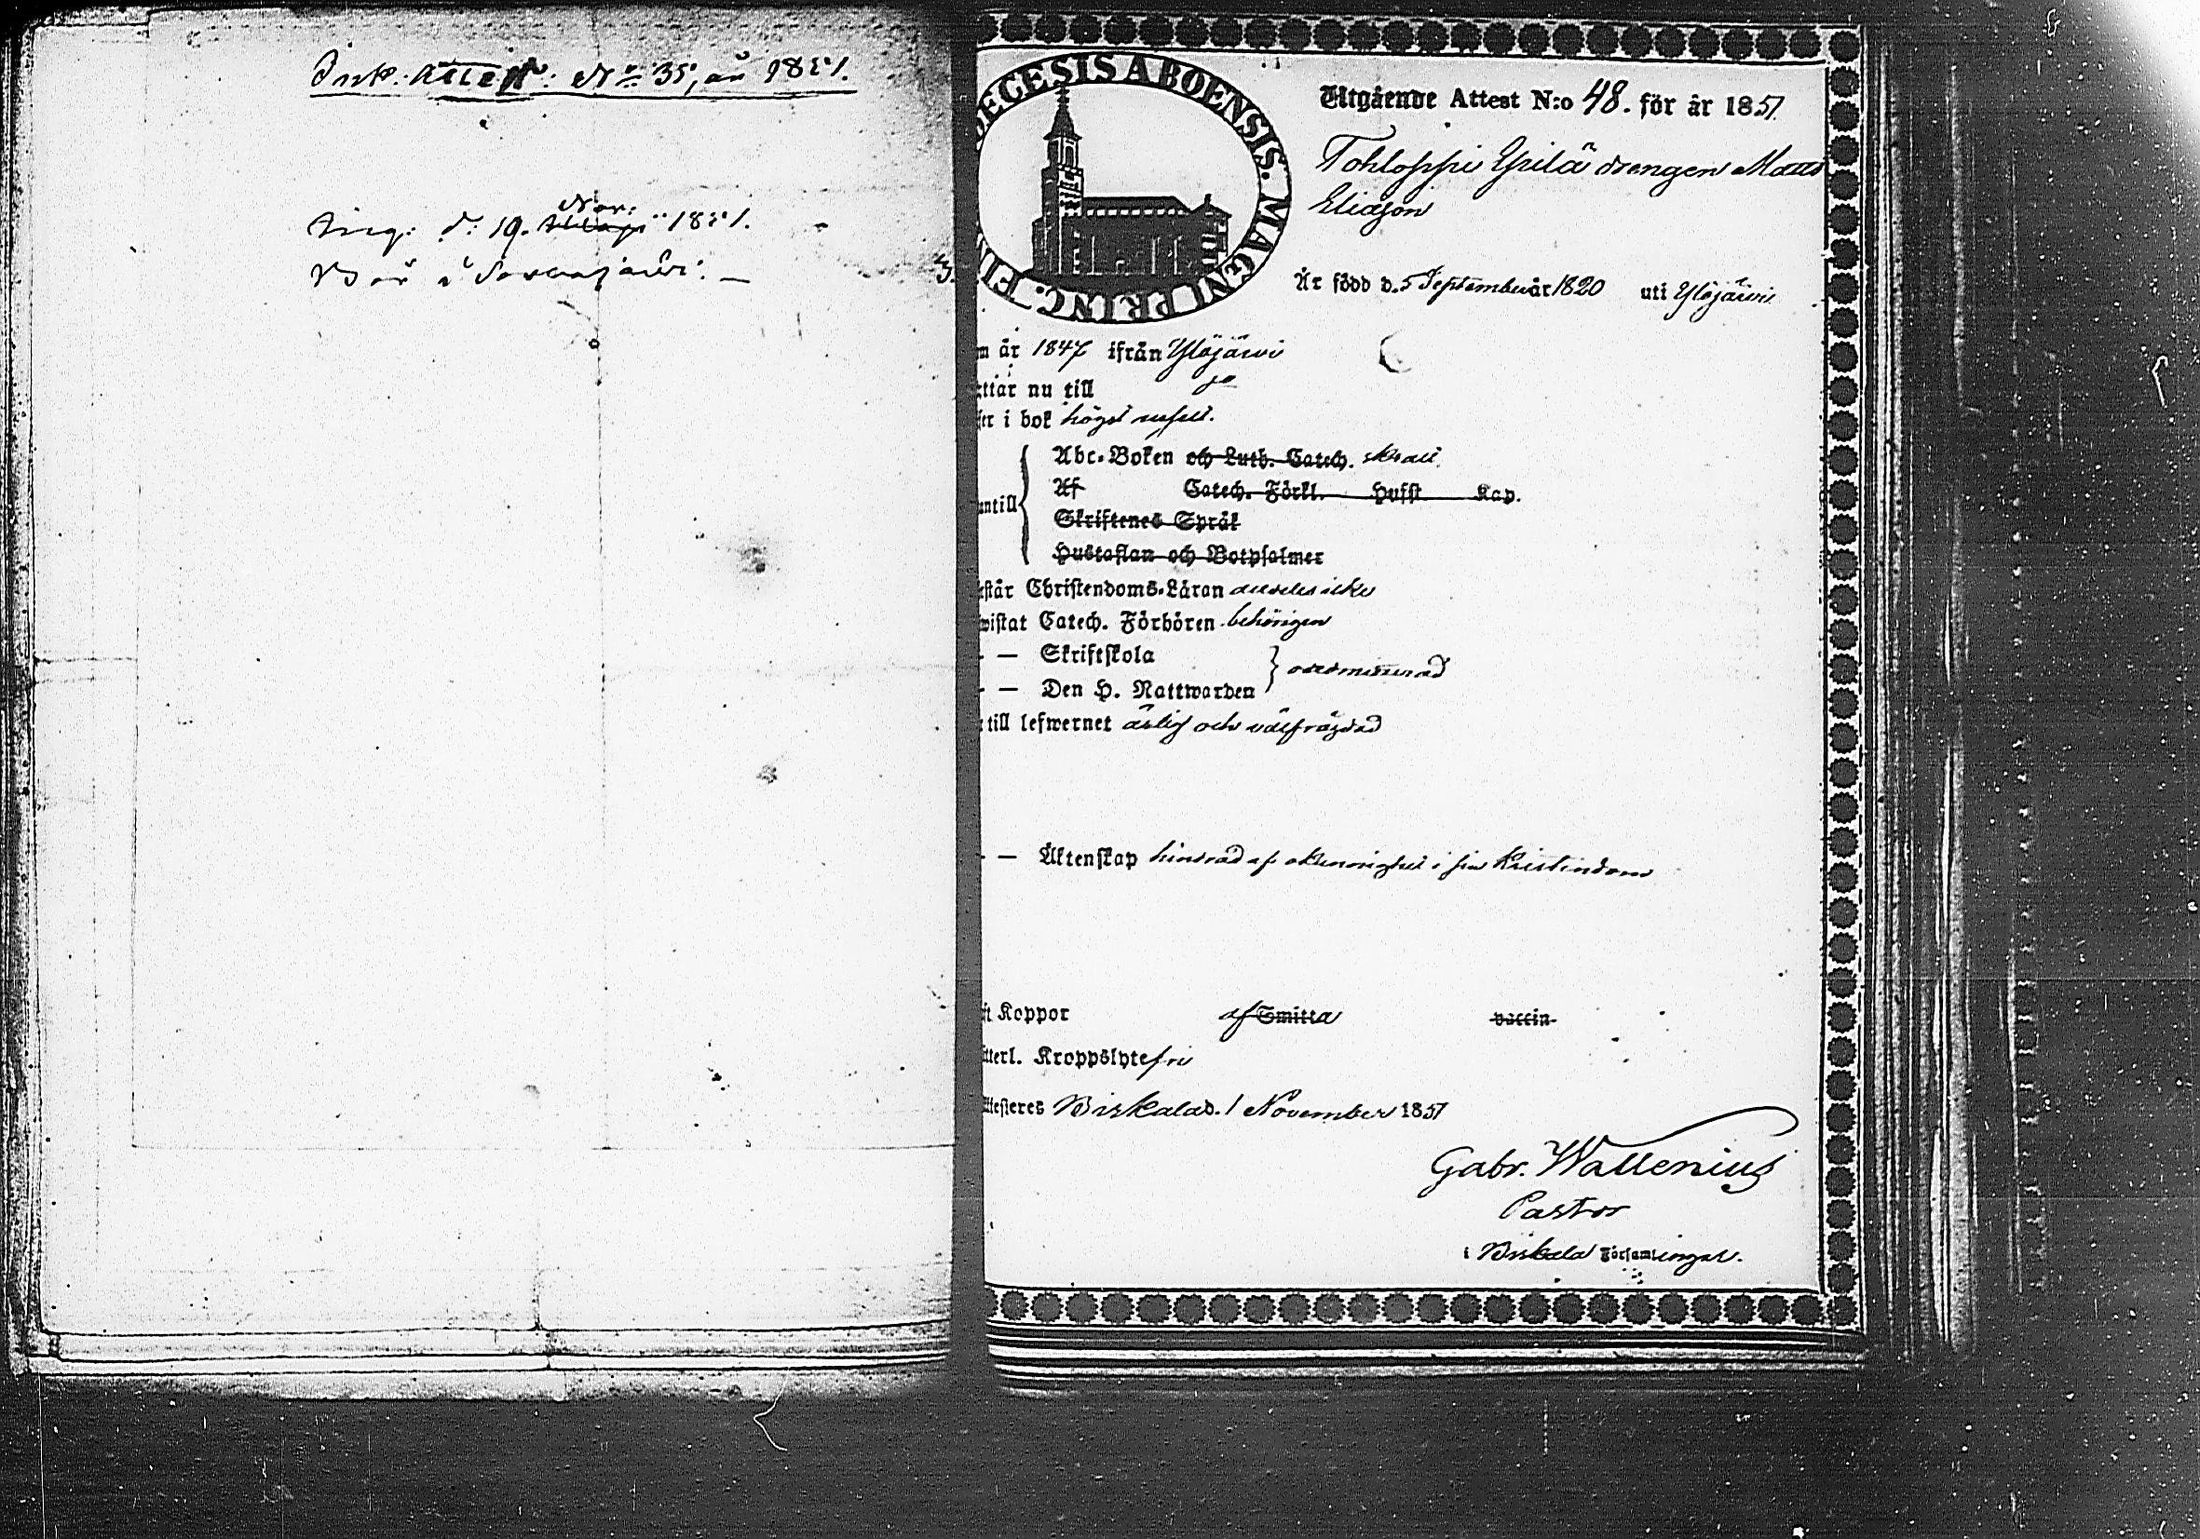 Ink. Attest: No 35, år 1851.
Nov:
d: 19. 1851.
DIECESIS ABOENSIS. MAGNI PRINC. FIN
Utgående Attest N:o 48. för år 1851
Tohloppi Ypilä drengen Matts
Eliasson
Är född d. 5 September år 1820 uti Ylöjärvi
m år 1847 ifrån Ylöjärvi
ttiar nu till
er i bok högst uselt.
Abc-Boken och Luth. Catech. skralt
Af Catech. Förkl. Hufst Kap.
antill
Skriftenes Språk
Hustaflan och Botpsalmer
står Christendoms-Läran alldeles icke
wistat Catech. Förhören behörigen
- — Skriftskola
oadmitterad
- — Den H. Nattwarden
till lefwernet ärlig och välfrägdad
- — Äktenskap hindrad af okunnighet i sin Kristendom
ft Koppor af Smitta vaccin
tterl. Kroppslyte fri
ttesteres Birkala d. 1 November 1851
Gabr. Wallenius
Pastor
i Birkala Församlingar.